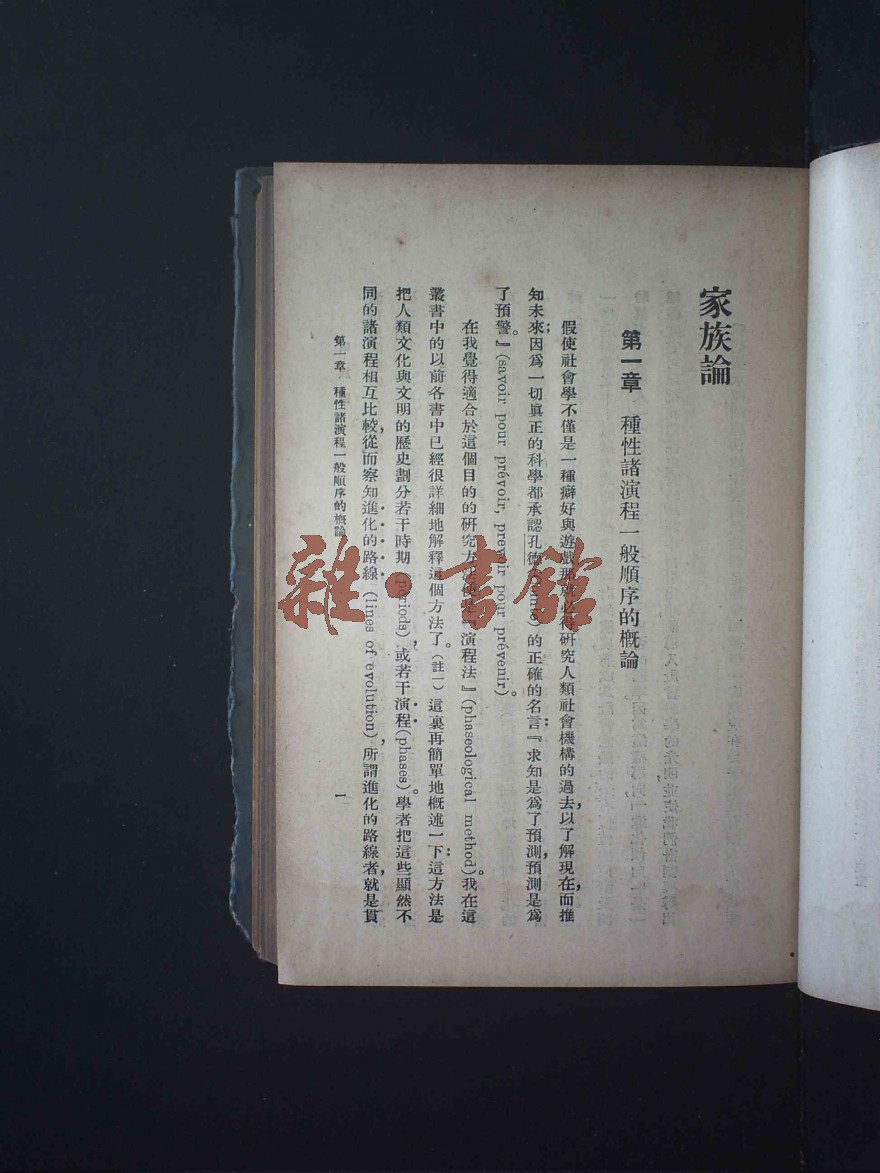 家族論
第一章　種性諸演程一般順序的概論
假使社會學不僅是一種癖好與遊戲那就必得研究人類社會機構的過去，以了解現在，而推
知未來；因爲一切眞正的科學都承認孔德(Comte)的正確的名言：『求知是爲了預測，預測是爲
了預警。』(savoir pour prévoir, prevoir pour prévenir)。
在我覺得適合於這個目的的研究方法便是『演程法』(phaseological method)。我在這
叢書中的以前各書中已經很詳細地解釋這個方法了。(註一)這裏再簡單地概述一下：這方法是
把人類文化與文明的歷史劃分若干時期(periods)，或若干演程(phases)。學者把這些顯然不
同的諸演程相互比較，從而察知進化的路線(lines of evolution)，所謂進化的路線者，就是貫
第一章　種性諸演程一般順序的概論
一
雜·書館